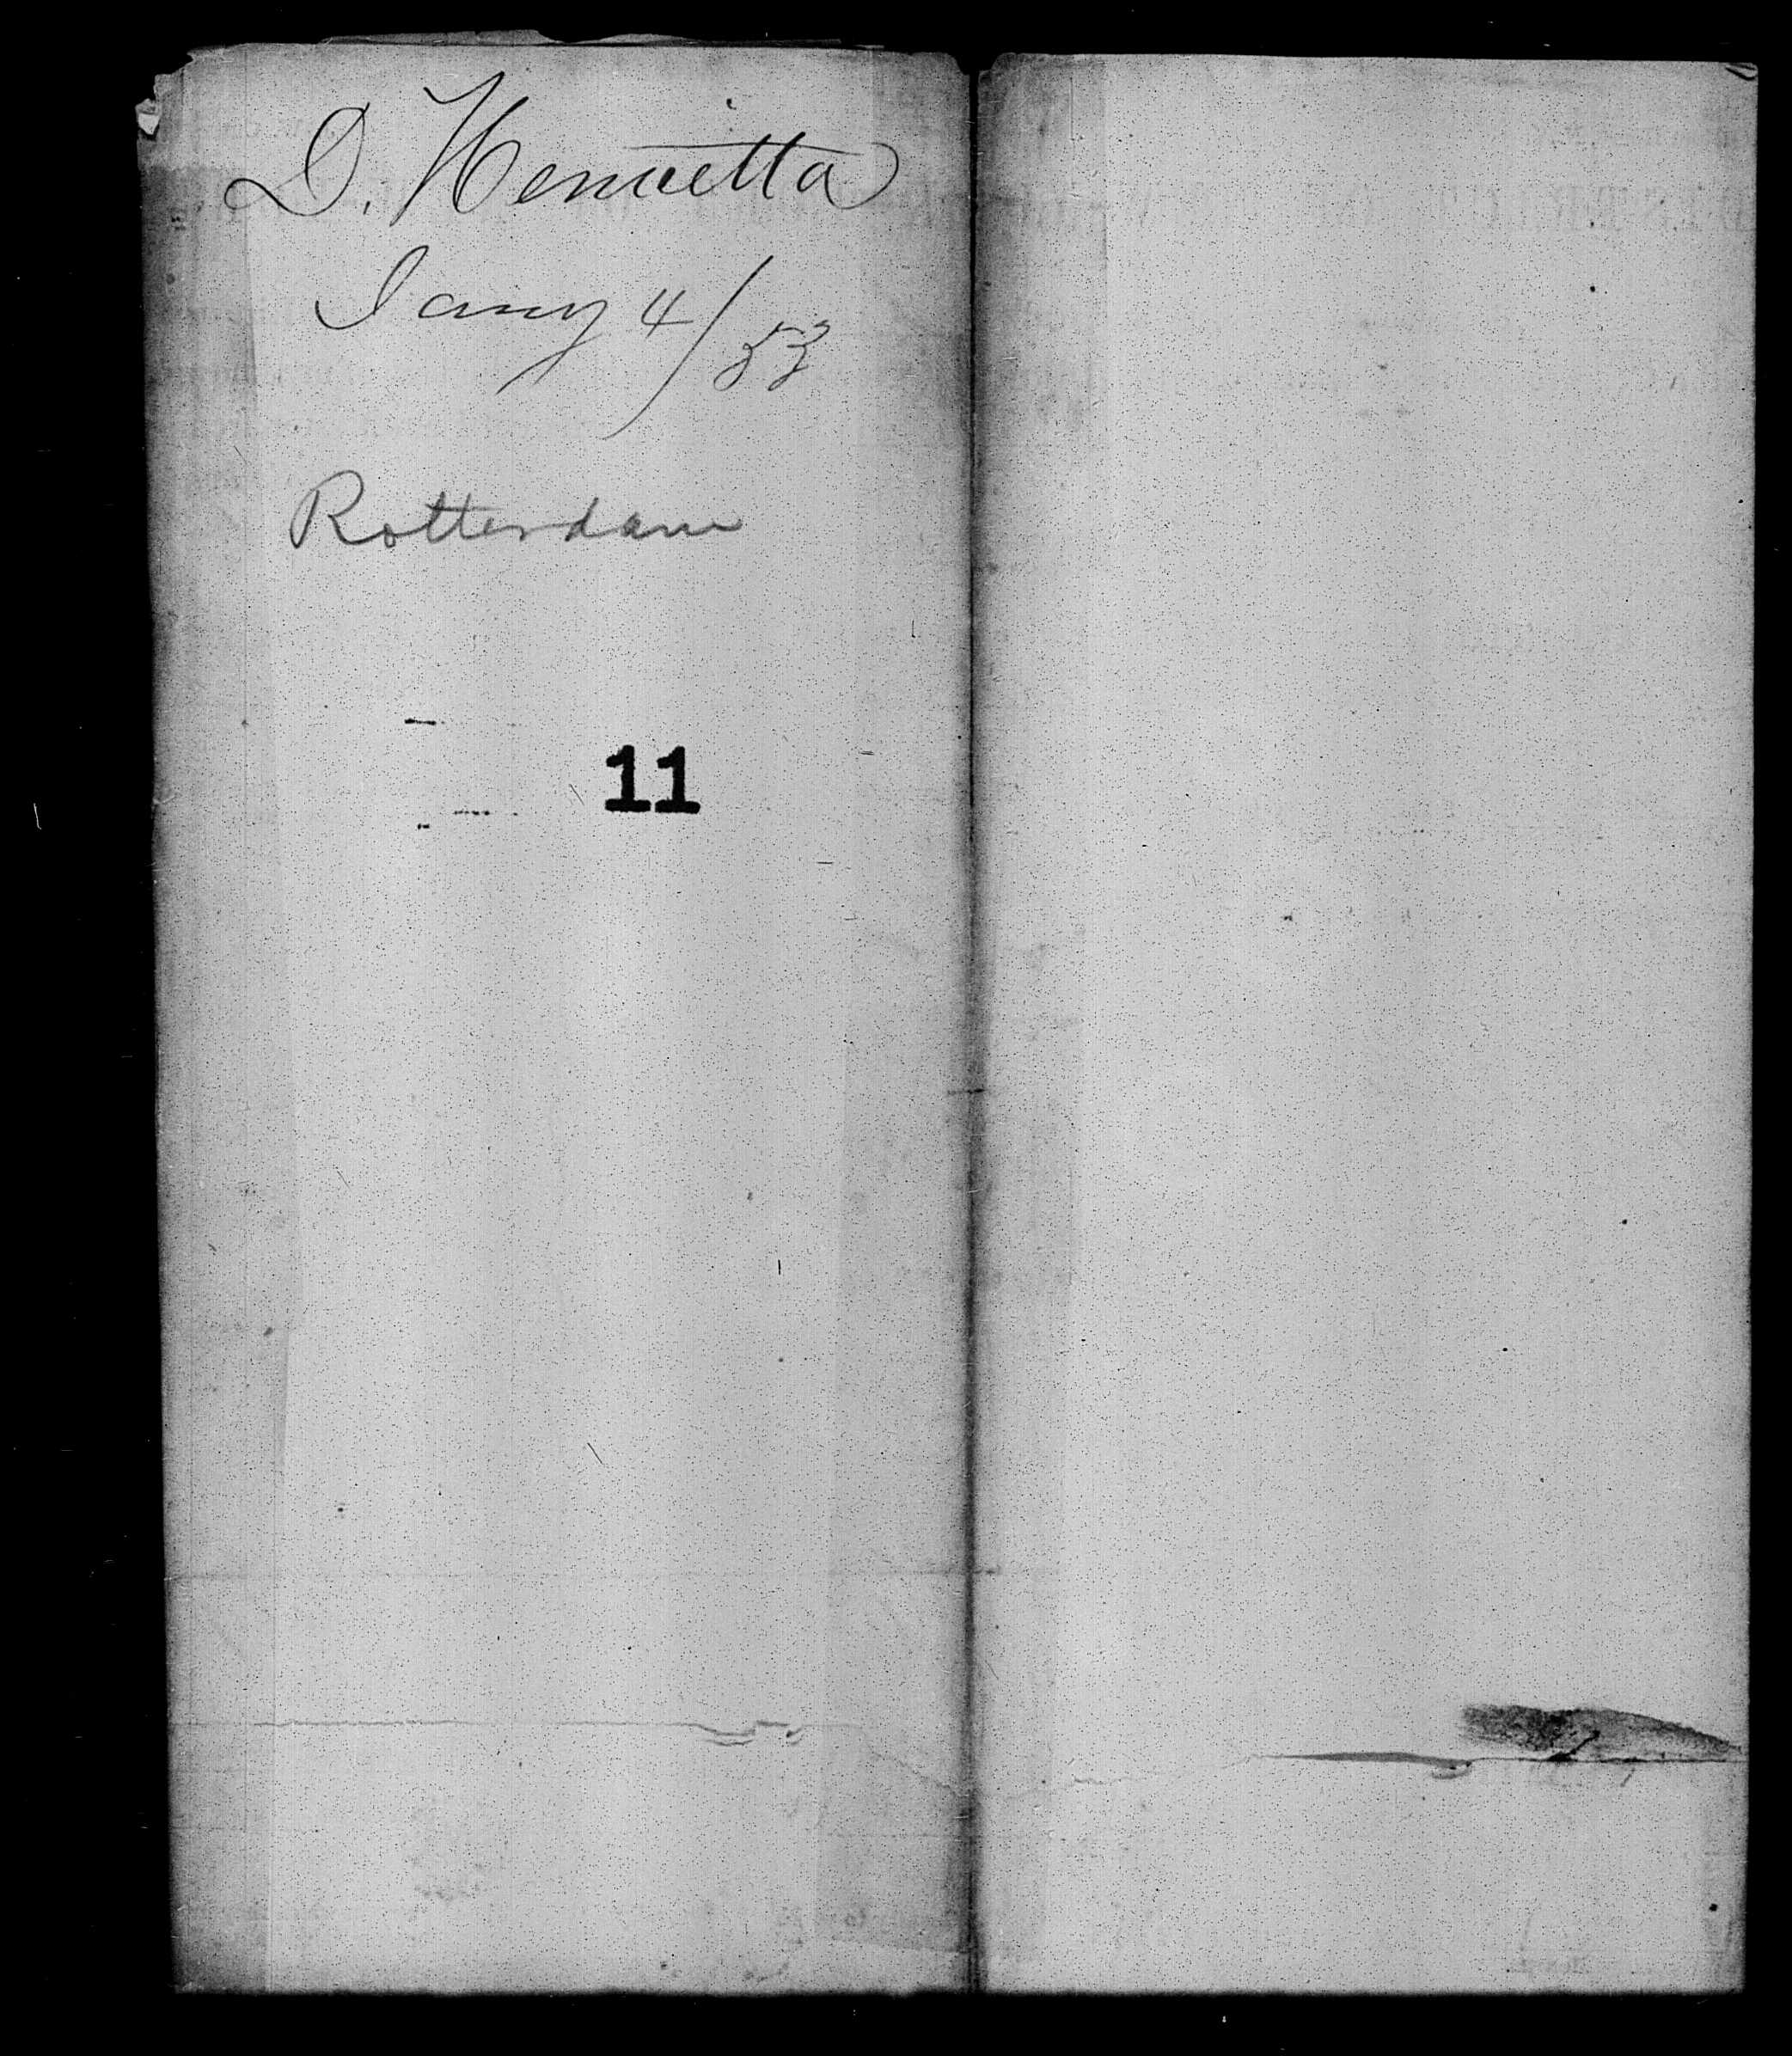 D. Henrietta
Jany 4/53
Rotterdam
11